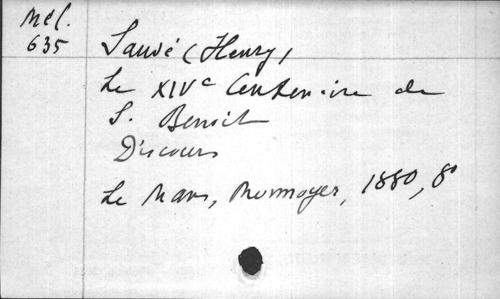 Mél.
635
Sauvé (Henry)
Le XIVe Centenaire de
S. Benoit
Discours
Le Mans, Monnoyer, 1880, 8°